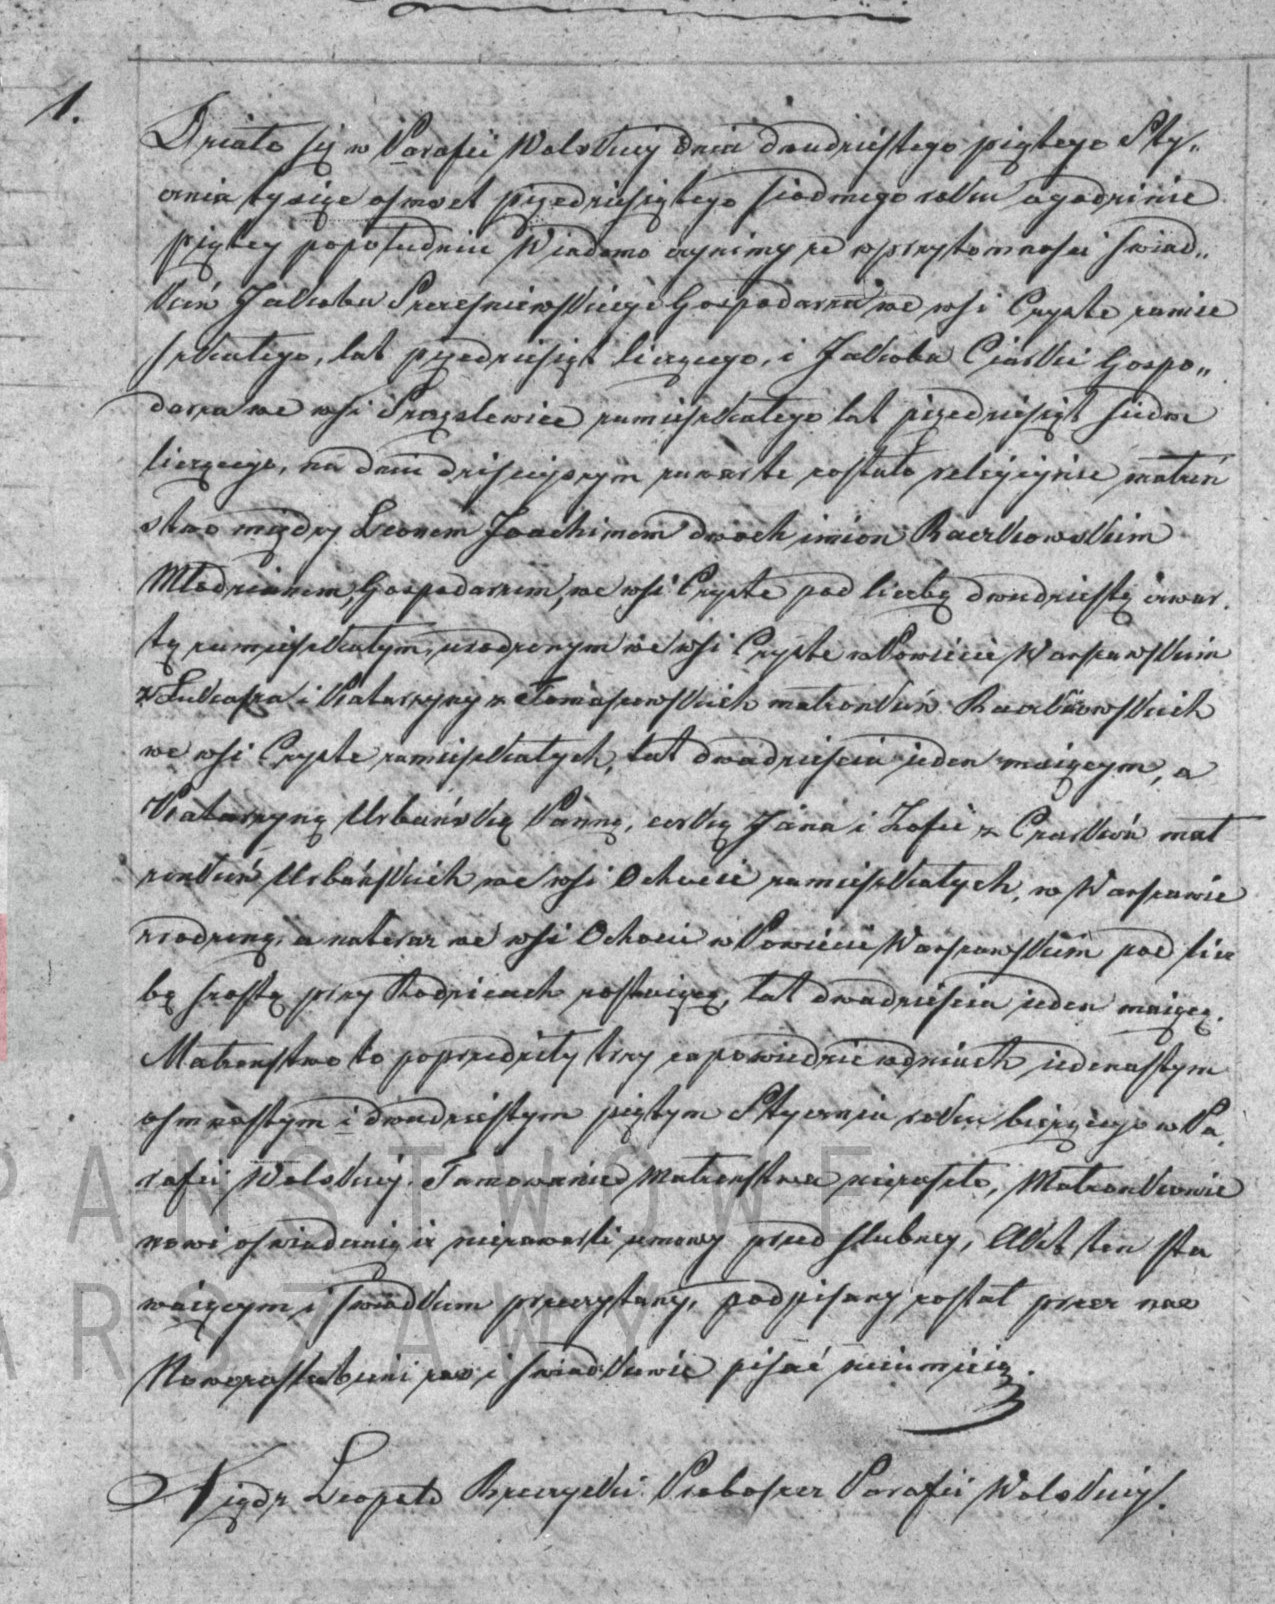 1.
Działo się w Parafii Wolskiey dnia dwudziestego piątego Sty„
cznia tysiąc osmset pięćdziesiątego siodmego roku o godzinie
piątey popołudniu Wiadomo czynimy że w przytomności świad„
ków Jakóba Szcześniewskiego Gospodarza we wsi Czyste zamie
szkałego, lat pięćdziesiąt liczącego, i Jakóba Ciastki Gospo„
darza we wsi zamieszkałego lat pięćdziesiąt siedm
liczącego, na dniu dzisieyszym zawarte zostało religijne małżeń
stwo między Leonem Joachimem dwóch imion Raczkowskim
Młodzianem, Gospodarzem, we wsi Czyste pod liczbą dwudziestą czwar.
tą zamieszkałym, urodzonym we wsi Czyste w Powiecie Warszawskim
z Łukasza i Katarzyny z Tomaszewskich małżonków Raczkowskich
we wsi Czyste zamieszkałych, lat dwadzieścia ieden maiącym, a
Katarzyną Urbańską Panną, córką Jana i Zofii z małż
żonków Urbańskich we wsi Ochocie zamieszkałych, w Warszawie
zrodzoną, a na teraz we wsi Ochocie w Powiecie Warszawskim pod licz
bą szóstą przy Rodzicach zostaiącą, lat dwadzieścia ieden maiącą.
Małżeństwo to poprzedziły trzy zapowiedzie w dniach iedenastym
osmnastym i dwudziestym piątym Stycznia roku bieżącego w Pa„
rafii Wolskiey. Tamowanie Małżeństwa nie zaszło, Małżonkowie
nowi oświadczaią iż nie zawarli umowy przed ślubney, Akt ten sta
waiącym i świadkom przeczytany, podpisany został przez nas
Nowozaślubieni zaś i świadkowie pisać nieumieią.
Xiądz Leopold Proboszcz Parafii Wolskiey.
PAŃSTWOWE
WARSZAWY